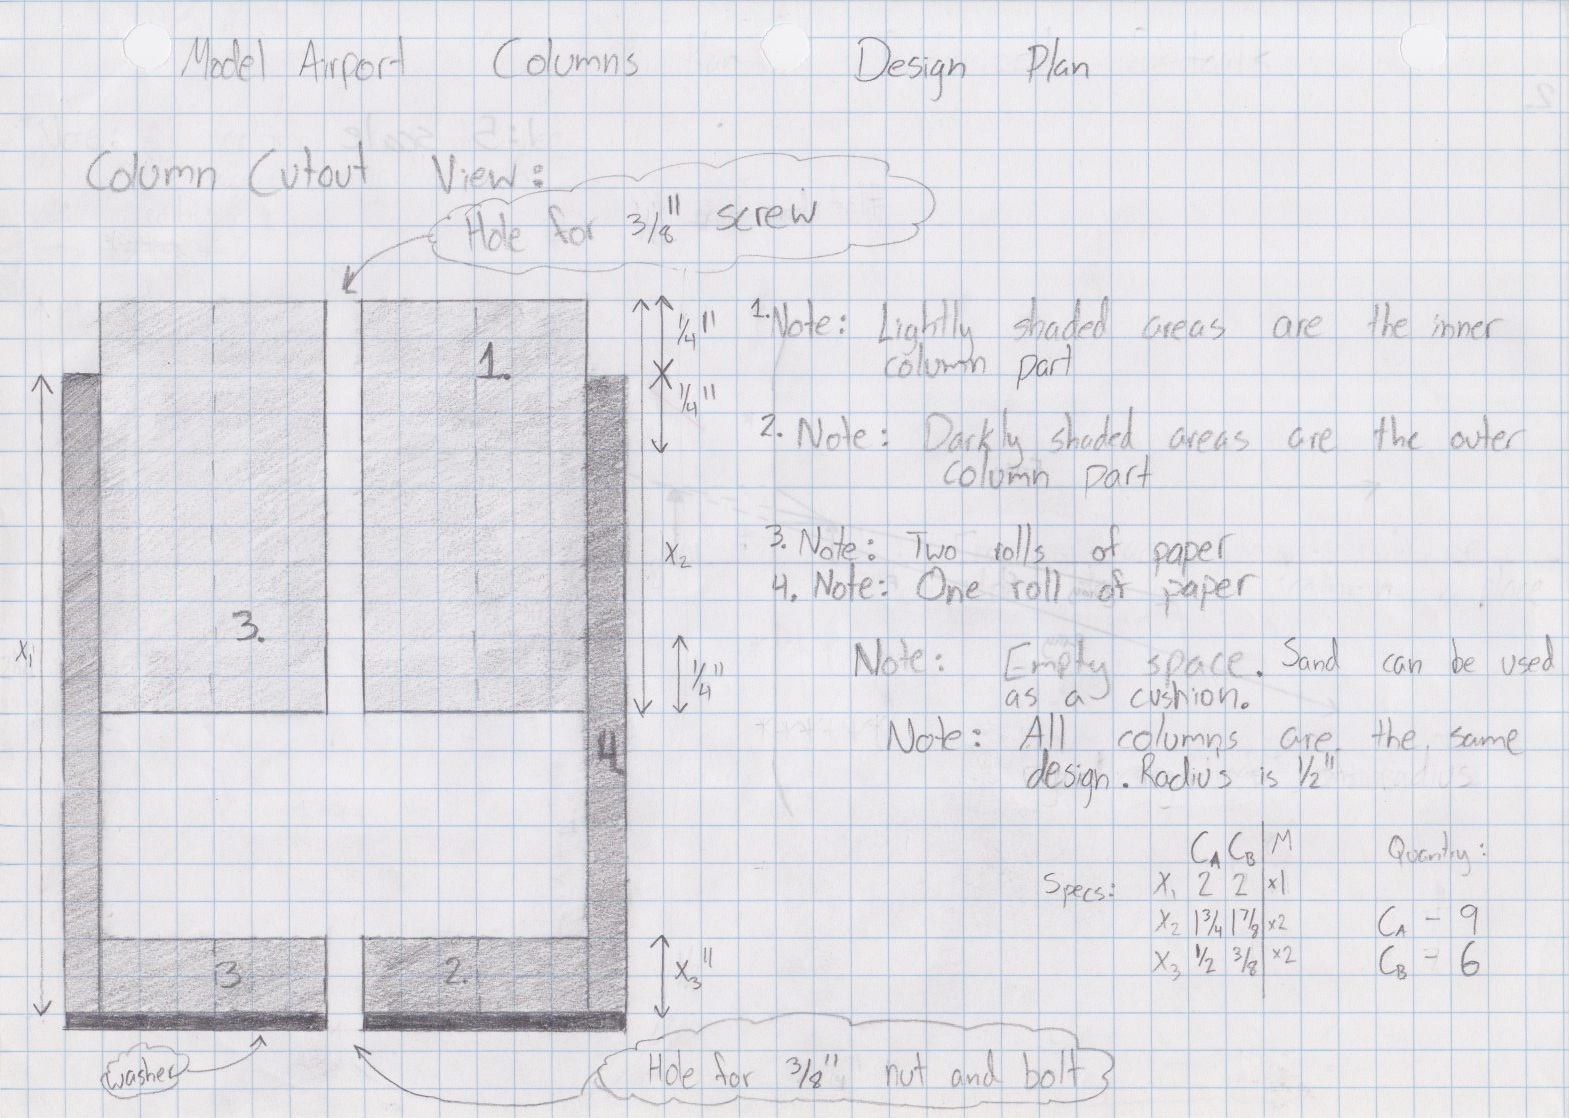 Model Airport Columns Design Plan
Column Cutout View:
Hole for 3/8" screw
1/4"
1/4"
x₂
1/4"
x₁
1.
3.
4
3
2.
x₃"
washer
Hole for 3/8" nut and bolt
1. Note: Lightly shaded areas are the inner
column part
2. Note: Darkly shaded areas are the outer
column part
3. Note: Two rolls of paper
4. Note: One roll of paper
Note: Empty space. Sand can be used
as a cushion.
Note: All columns are the same
design. Radius is 1/2"
C_A C_B M
Specs: X₁ 2 2 x1
X₂ 1 3/4 1 7/8 x2
X₃ 1/2 3/8 x2
Quantity:
C_A - 9
C_B - 6